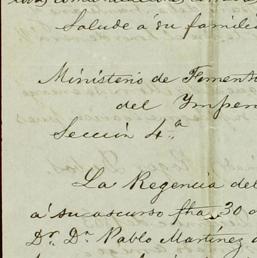 Salude á su famili
Ministerio de Foment
del Imper
Sección 4.ª
La Regencia del
á su ascurso fha. 30 a
Dr. Dn. Pablo Martínez d